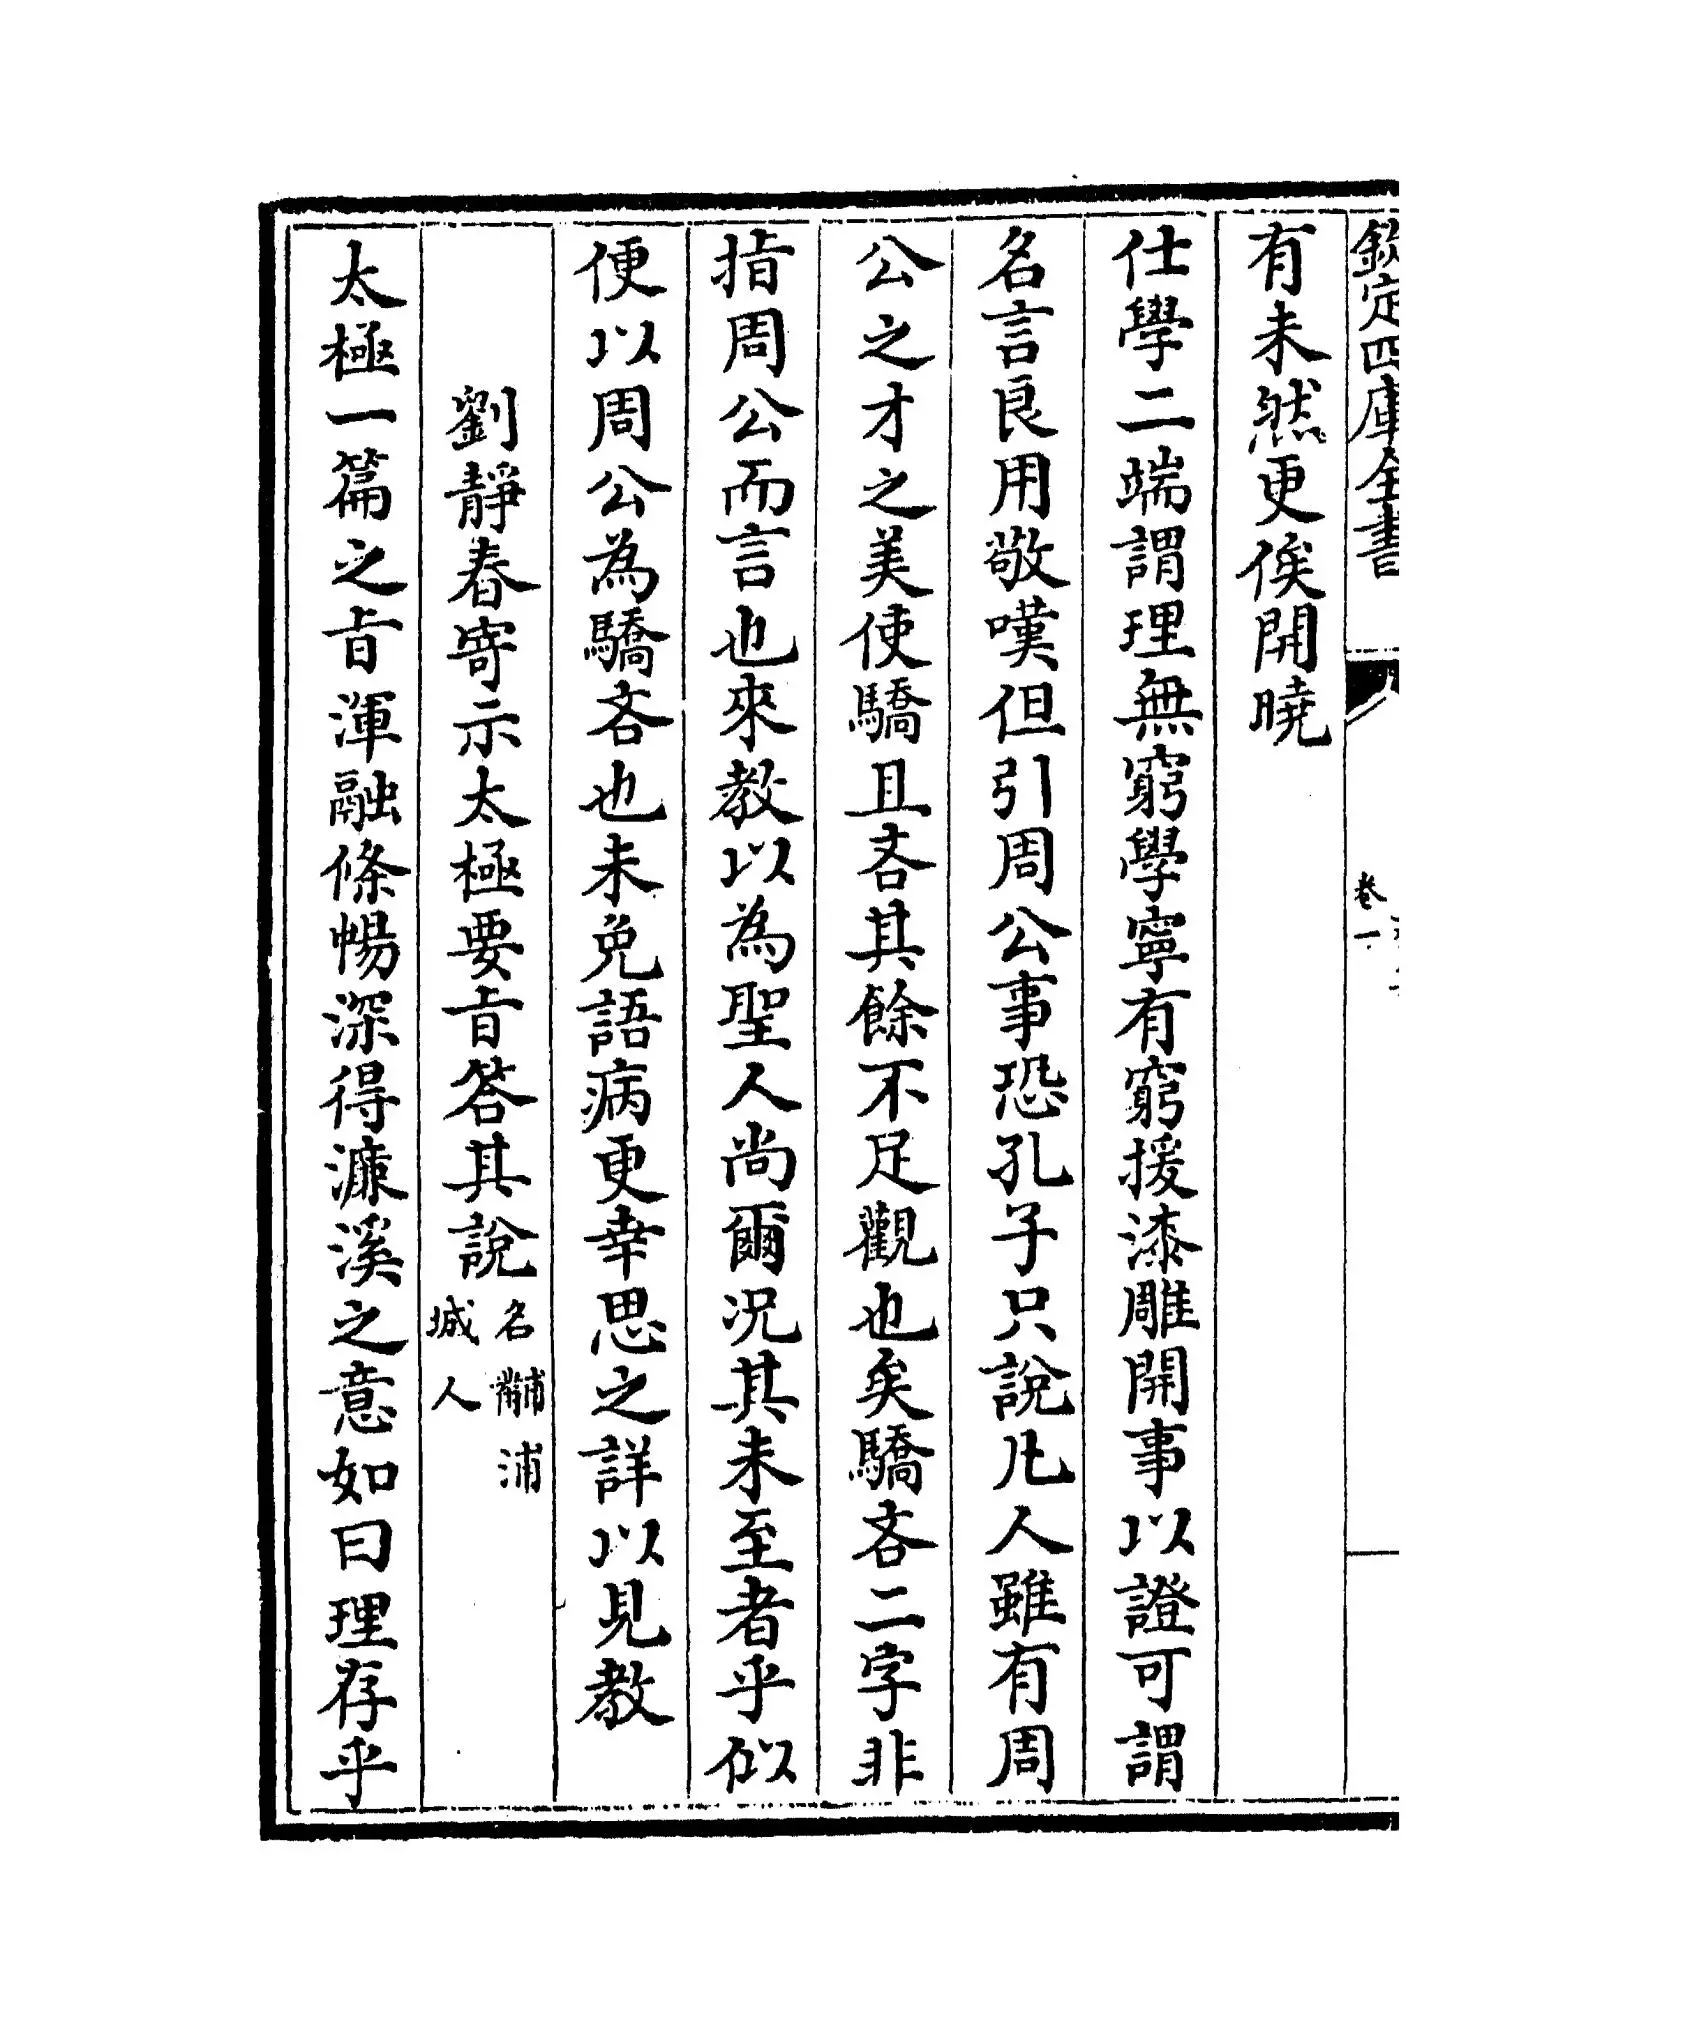 欽定四庫全書
卷一
有未然更俟開曉
仕學二端謂理無窮學寧有窮援漆雕開事以證可謂
名言良用敬嘆但引周公事恐孔子只說凡人雖有周
公之才之美使驕且吝其餘不足觀也矣驕吝二字非
指周公而言也來教以為聖人尚爾况其未至者乎似
便以周公為驕吝也未免語病更幸思之詳以見教
劉靜春寄示太極要旨答其說
名黼浦
城人
太極一篇之旨渾融條暢深得濂溪之意如曰理存乎